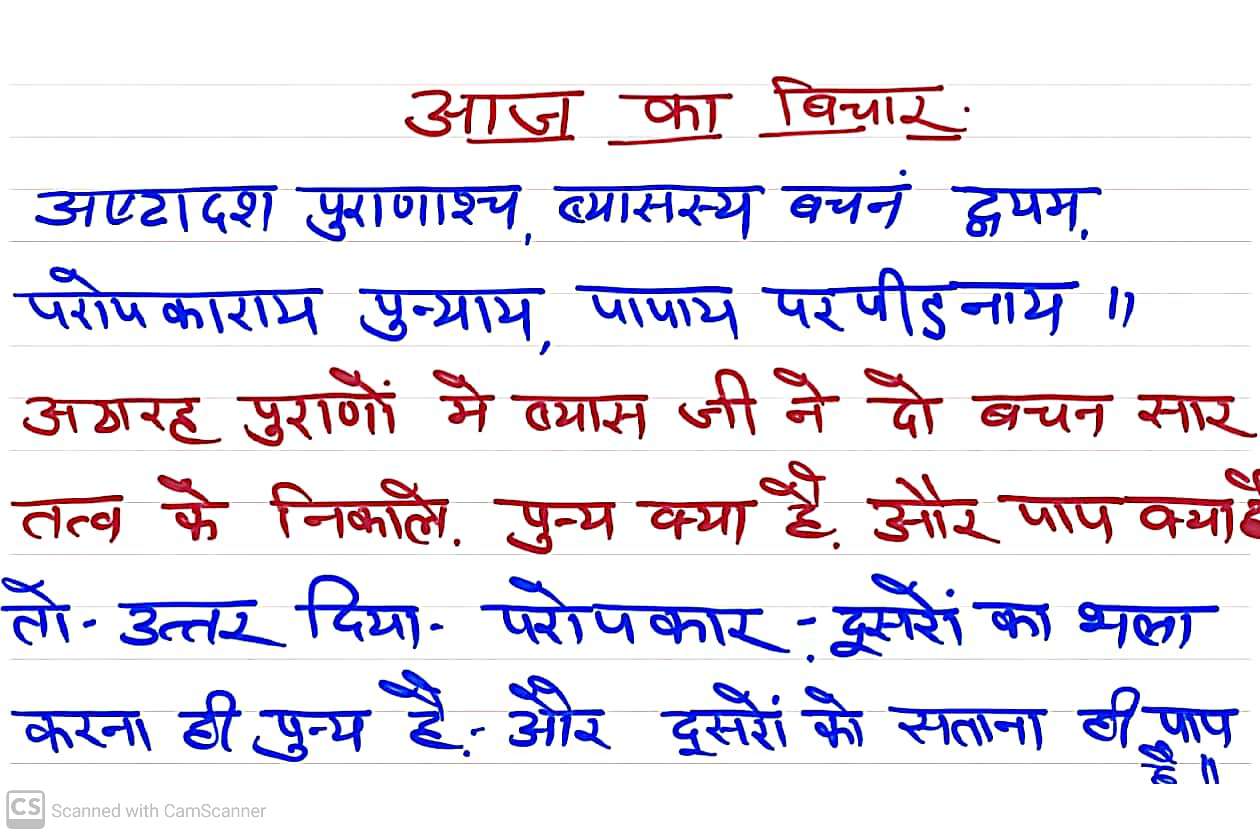 आज का बिचार.
अष्टादश पुराणाश्च, ब्यासस्य बचनं द्वयम,
परोपकाराय पुन्याय, पापाय परपीडनाय ॥
अठारह पुराणों मे ब्यास जी ने दो बचन सार
तत्व के निकाले. पुन्य क्या है. और पाप क्या है
तो- उत्तर दिया- परोपकार -: दूसरों का भला
करना ही पुन्य है.- और दूसरों को सताना ही पाप
है ॥
CS Scanned with CamScanner